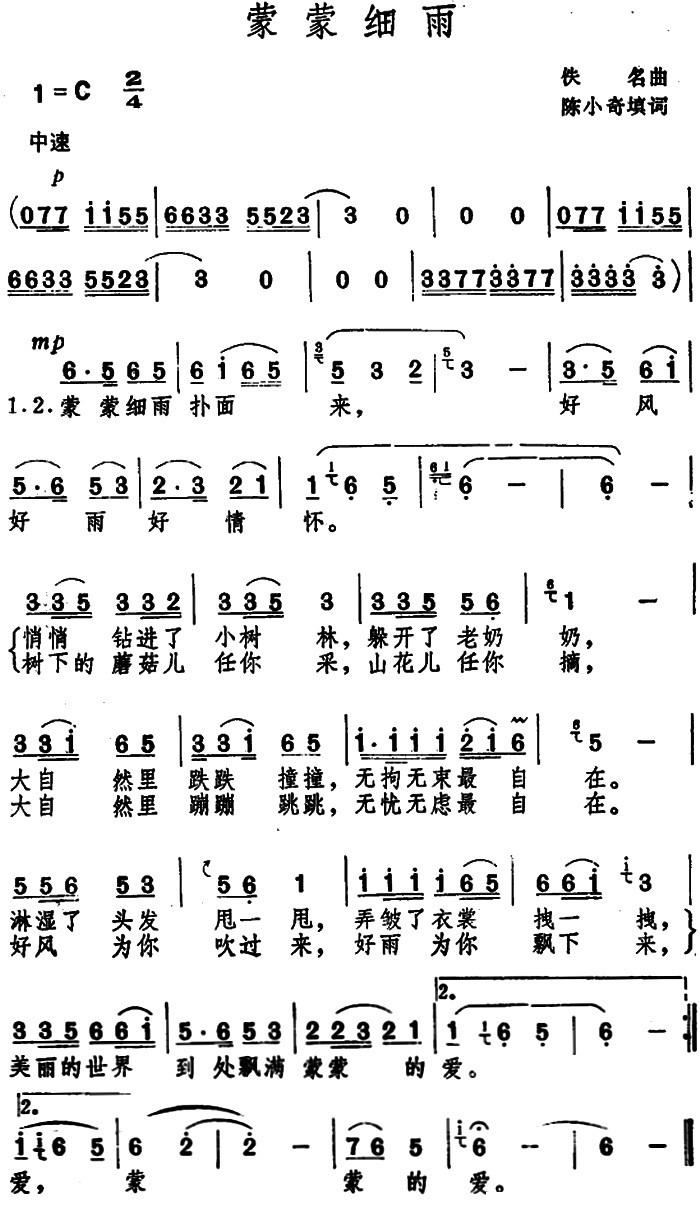 蒙蒙细雨
1=C 2/4
佚 名曲
陈小奇填词
中速
p
(077 i i55 | 6633 5523 | 3 0 | 0 0 | 077 i i55 |
6633 5523 | 3 0 | 0 0 | 3377 3377 | 3333 3) |
mp
6·5 65 | 6 i 65 | 5 3 2 | 3 － | 3·5 6i |
1.2.蒙 蒙细雨 扑面 来， 好 风
5·6 53 | 2·3 21 | 1 6 5 | 6 － | 6 － |
好 雨 好 情 怀。
335 332 | 335 3 | 335 56 | 1 － |
悄悄 钻进了 小树 林，躲开了 老奶 奶，
树下的 蘑菇儿 任你 采，山花儿 任你 摘，
33i 65 | 33i 65 | i·i i i 2 i 6 | 5 － |
大自 然里 跌跌 撞撞，无拘无束最 自 在。
大自 然里 蹦蹦 跳跳，无忧无虑最 自 在。
556 53 | 56 1 | i i i i 65 | 66i 3 |
淋湿了 头发 甩一 甩，弄皱了衣裳 拽一 拽，
好风 为你 吹过 来，好雨 为你 飘下 来，
2.
335 66i | 5·6 53 | 2232 21 | 1 6 5 | 6 － :||
美丽的世界 到 处飘满 蒙蒙 的 爱。
2.
i 6 5 | 6 2 | 2 － | 76 5 | 6 － | 6 － ||
爱， 蒙 蒙 的 爱。